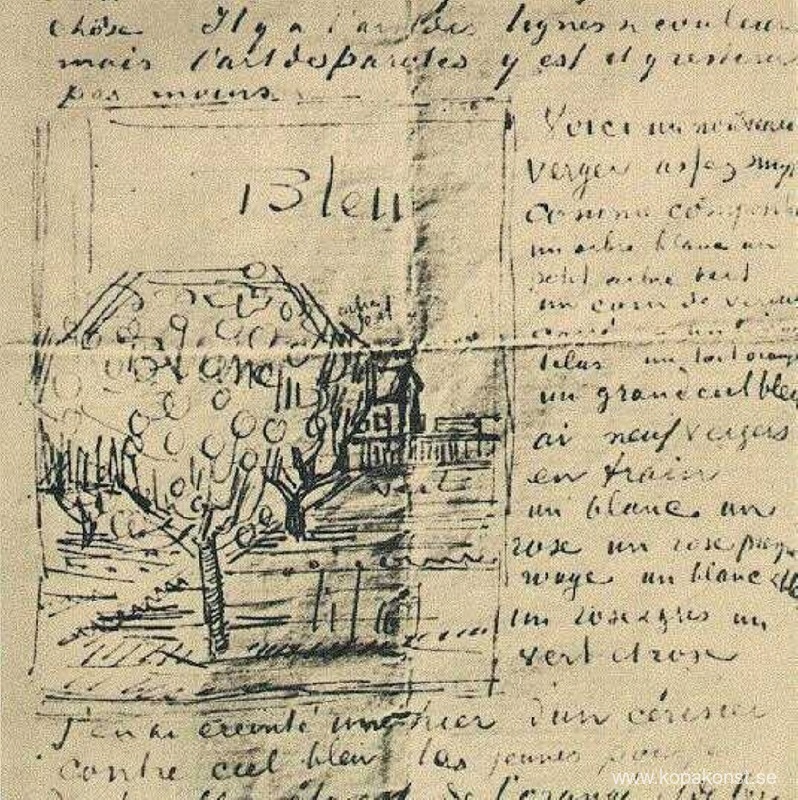 chose Il y a l'art des lignes & couleurs
mais l'art des paroles y est et y restera
pas moins.
Bleu
blanc
verte
Voici un nouveau
verger assez simple
comme composition
un arbre blanc un
petit arbre vert
un carré de verdure
lilas un toit orangé
un grand ciel bleu
ai neuf vergers
en train
un blanc un
rose un rose presque
rouge un blanc et bleu
un rose & gris un
vert et rose
J'en ai éreinté un hier d'un cérisier
contre ciel bleu les jeunes pousses
de l'orangé
www.kopakonst.se